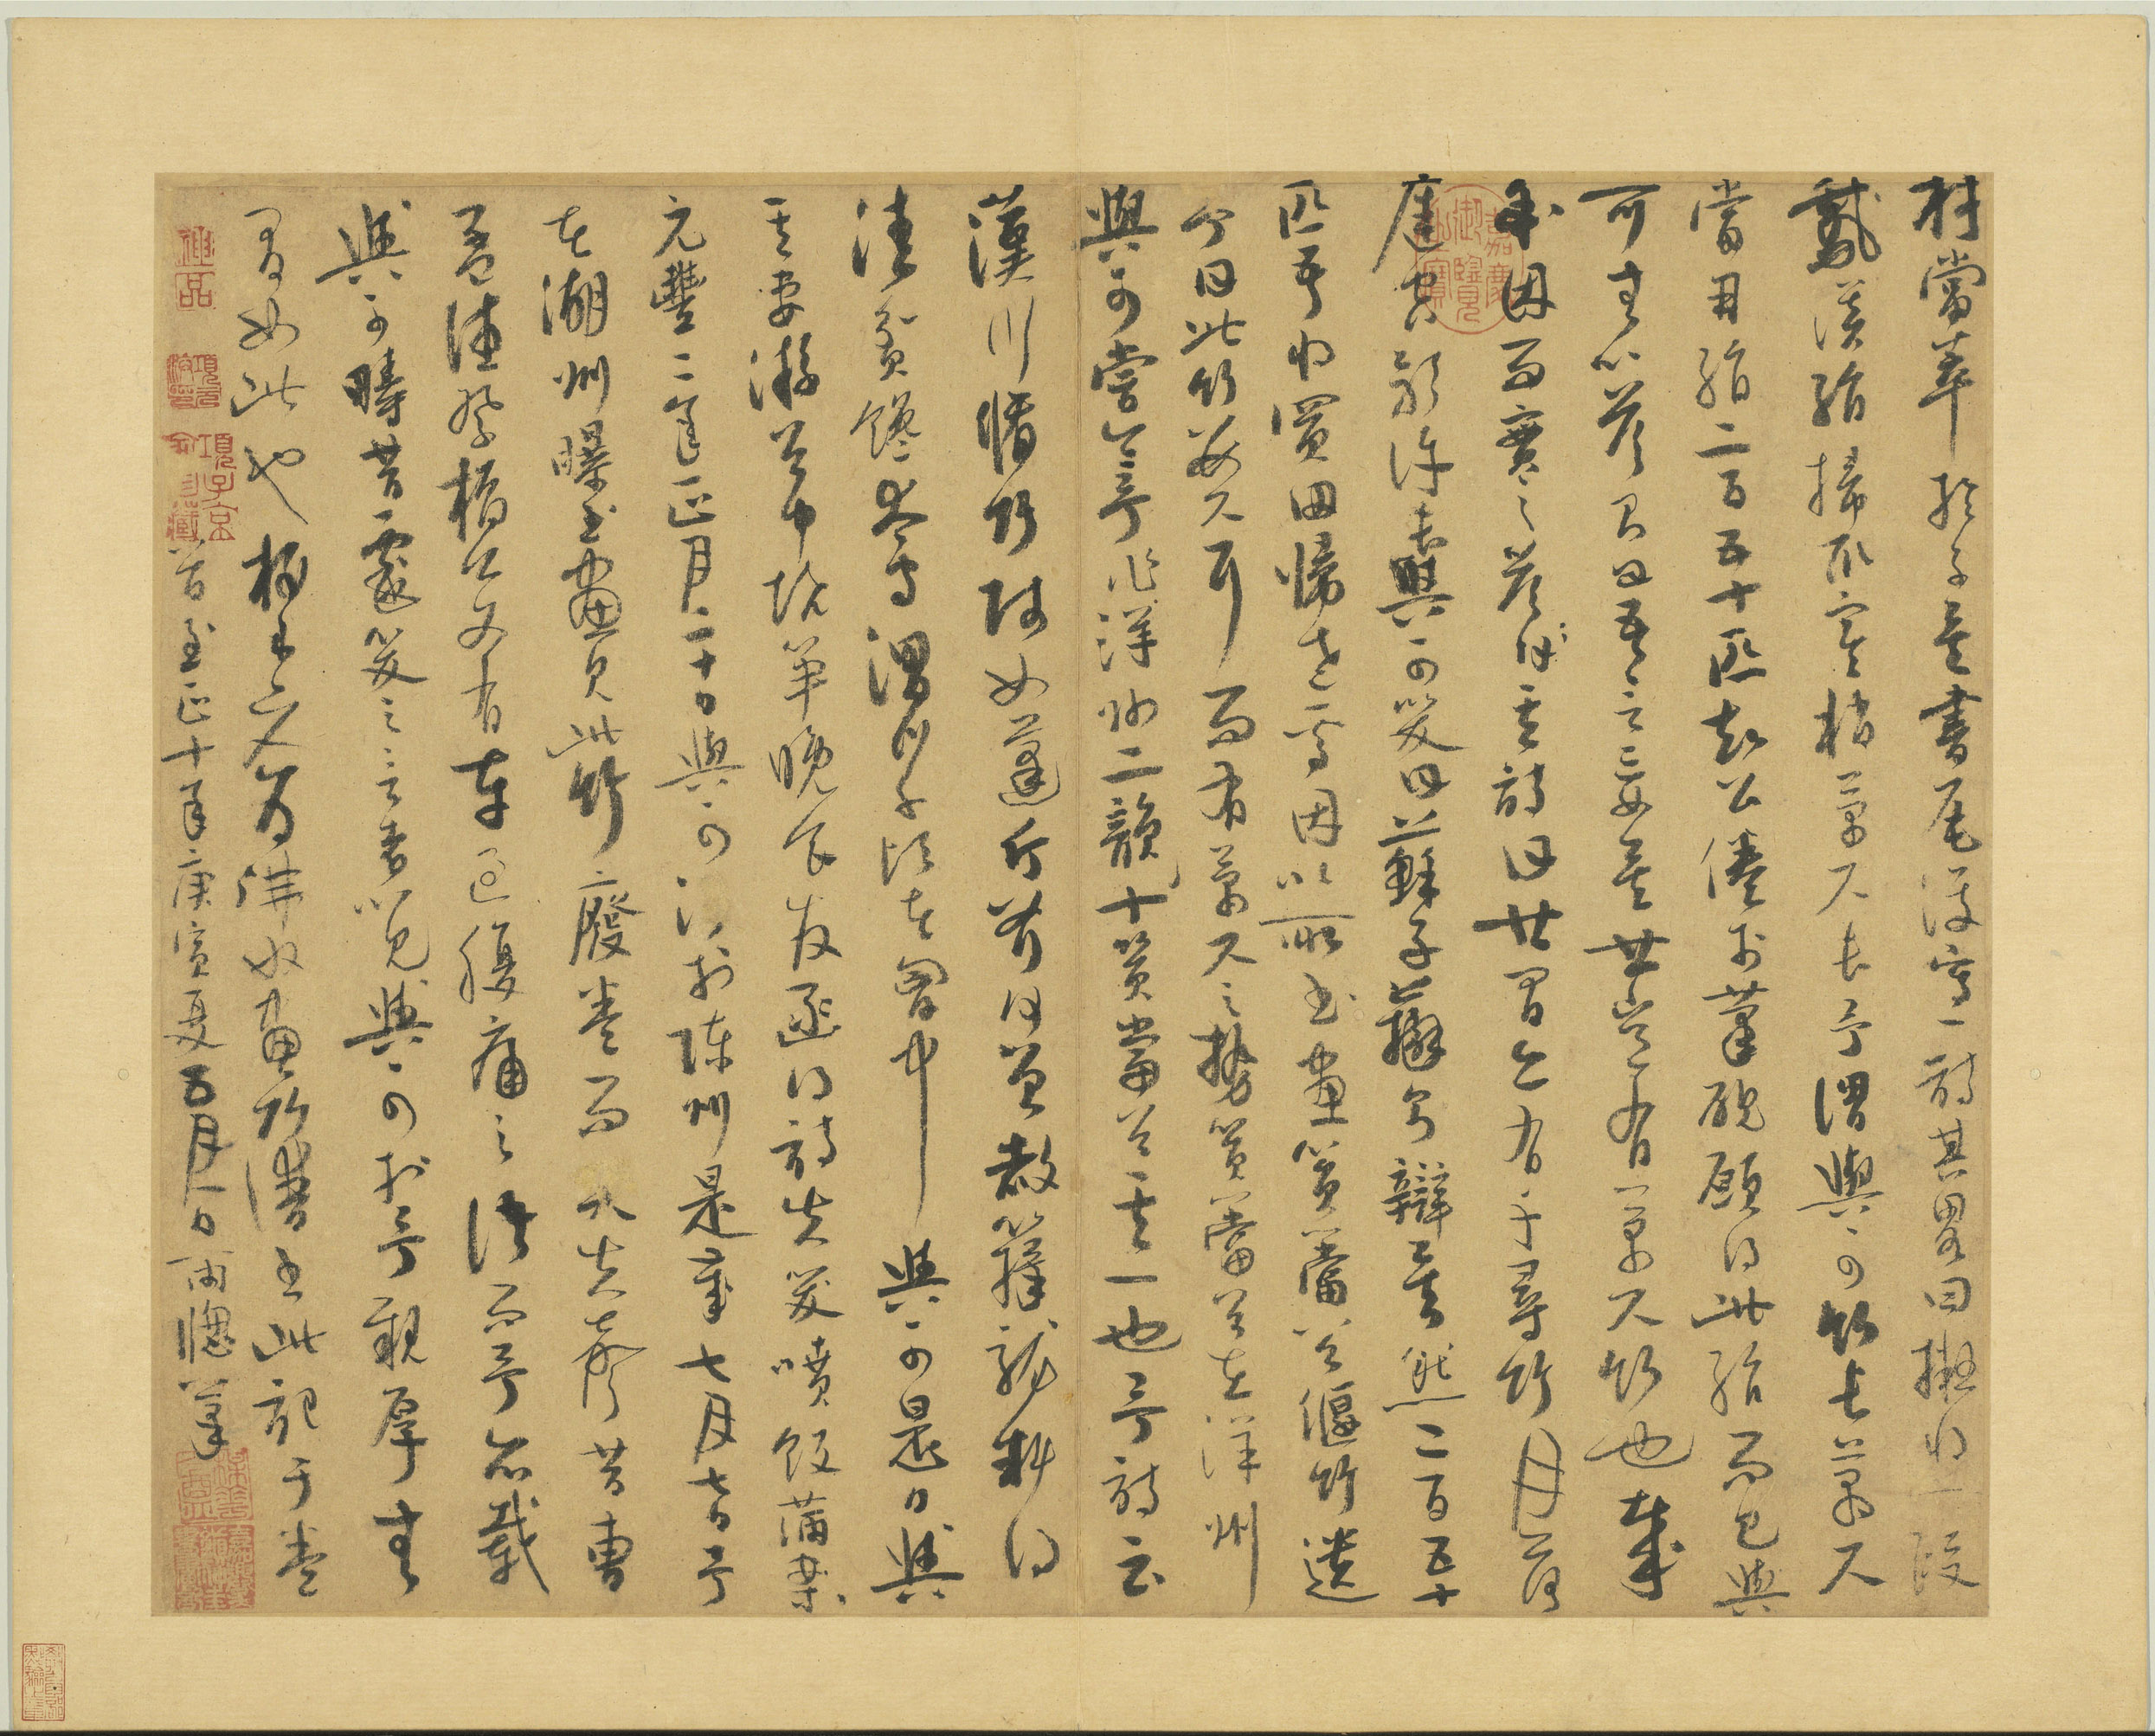 材當萃於子矣書尾復寫一詩其畧曰擬將一段
鵝溪絹掃取寒梢萬尺長予謂與可竹長萬尺
當用絹二百五十匹知公倦於筆硯願得此絹而已與
可無以答則曰吾言妄矣世豈有萬尺竹也哉
余因而實之答其詩曰世間亦有千尋竹月落
庭空影許長與可笑曰蘇子辯則辯矣然二百五十
匹吾將買田歸老焉因以所書畫篔簹谷偃竹遺
予曰此竹數尺耳而有萬尺之勢篔簹谷在洋州
與可嘗令予作洋州二韻十篔簹谷其一也予詩云
漢川脩竹賤如蓬斤斧何曾赦籜龍料得
清貧饞太守渭川千畝在胸中與可是日與
其妻游谷中燒筍晚食發函得詩失笑噴飯滿案
元豐二年正月二十日與可沒於陳州是歲七月七日予
在湖州曝書畫見此竹廢卷而哭失聲昔曹
孟德祭橋公文有車過腹痛之語而予亦載
與可疇昔戲笑之言者以見與可於予親厚無
間如此也為佛奴畫竹譜書此記于卷
首至正十年庚寅夏五月一日雨窗筆